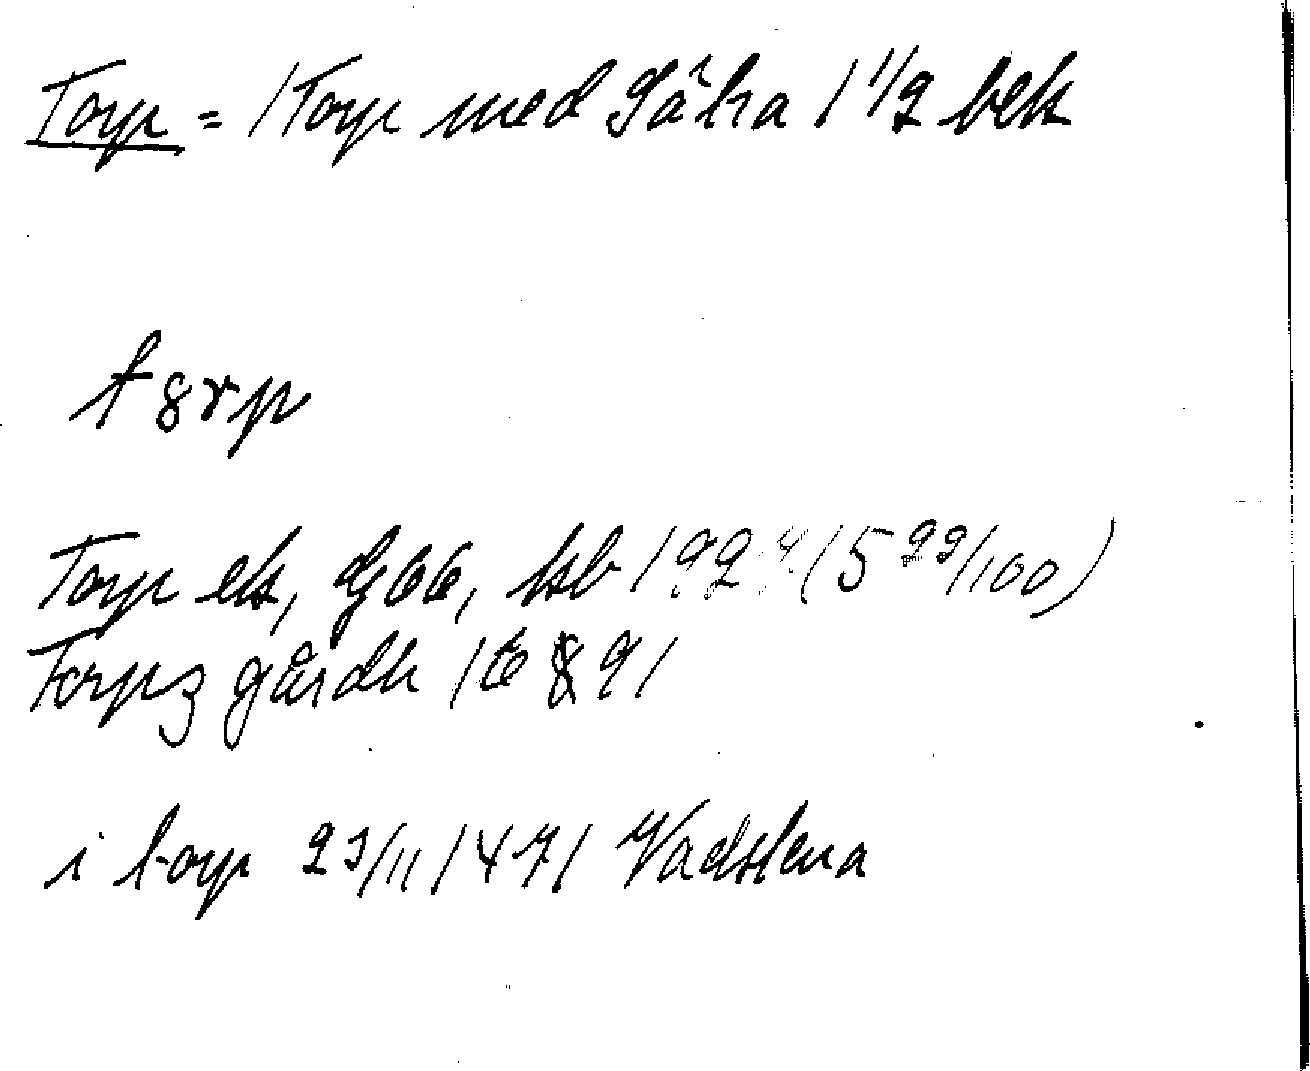 Torp = /Torp med Säha / 1 1/2 bek
t8rp
Torp ek, Gjbb, kb 1927 (5 29/100)
Torpz gårdh 1691
i torp 23/11 1471 Vadstena